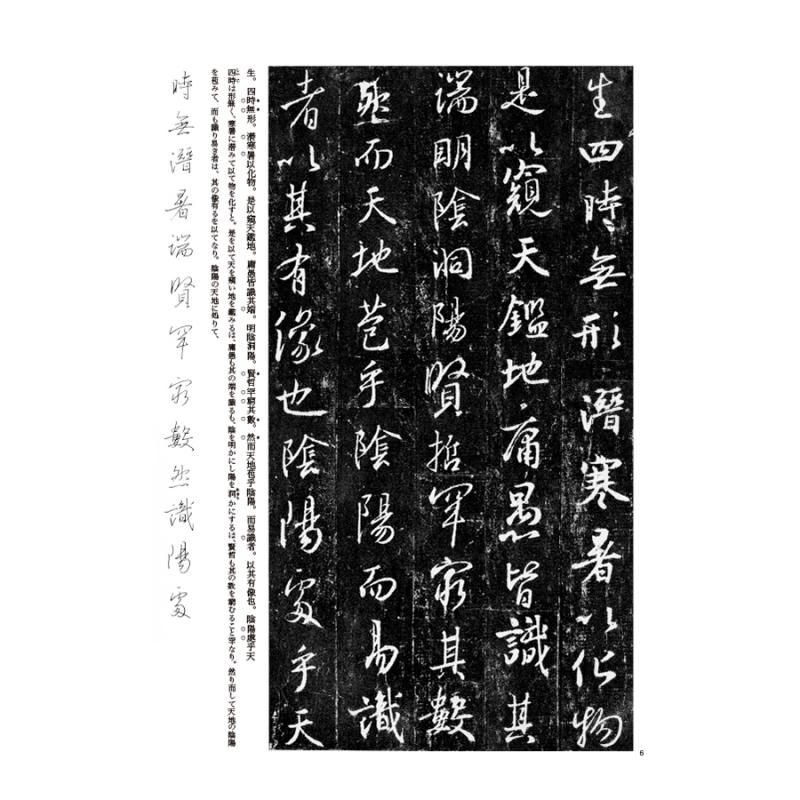 生四時無形潛寒暑以化物
是以窺天鑑地庸愚皆識其
端明陰洞陽賢哲罕窮其數
然而天地苞乎陰陽而易識
者以其有像也陰陽處乎天
生。四時無形。潛寒暑以化物。是以窺天鑑地。庸愚皆識其端。明陰洞陽。賢哲罕窮其數。然而天地苞乎陰陽。而易識者。以其有像也。陰陽處乎天
四時は形無く、寒暑に潜みて以て物を化すと。是を以て天を窺い地を鑑みるは、庸愚も其の端を識るも、陰を明かにし陽を洞かにするは、賢哲も其の数を窮むること罕なり。然り而して天地の陰陽
を苞みて、而も識り易き者は、其の像有るを以てなり。陰陽の天地に処りて、
時無潛暑端賢罕窮數然識陽處
6